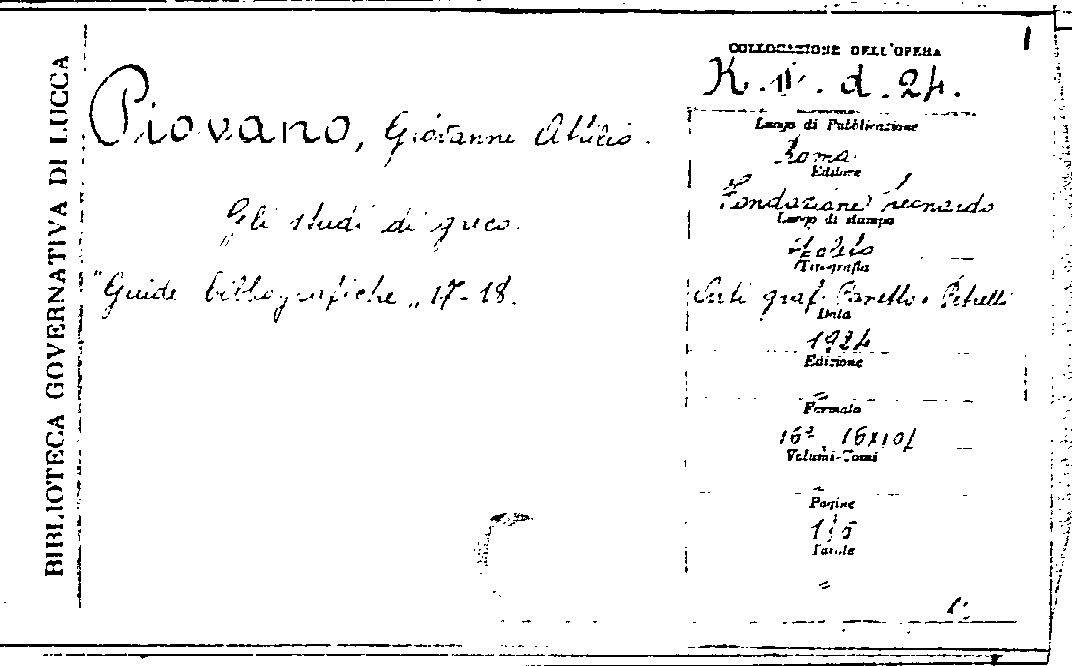 BIBLIOTECA GOVERNATIVA DI LUCCA
Piovano, Giovanni Attilio.
Gli studi di greco.
"Guide bibliografiche„ 17-18.
COLLOCAZIONE DELL'OPERA
d. 24.
Luogo di Pubblicazione
Roma
Editore
Fondazione Leonardo
Luogo di stampa
Tipografia
graf.
Data
1924
Edizione
Formato
16º 16x10½
Volumi-Tomi
Pagine
Tavole